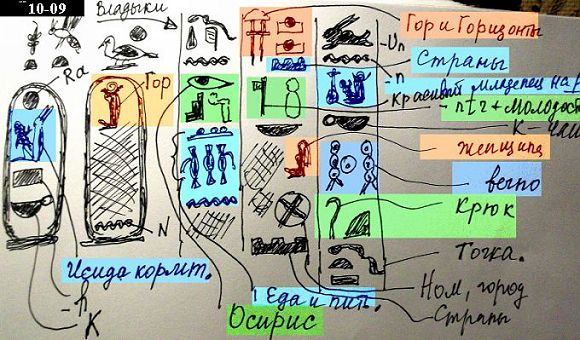 10-09
Владыки
Гор и Горизонты
Un
Страны
Ra
n
Гор
Красивый младенец на р
ntr + Молодос
K - чаш
женщина
вечно
N
Крюк
Точка.
Исида кормит.
Ном, город
Еда и пит.
h
K
Осирис
Страны